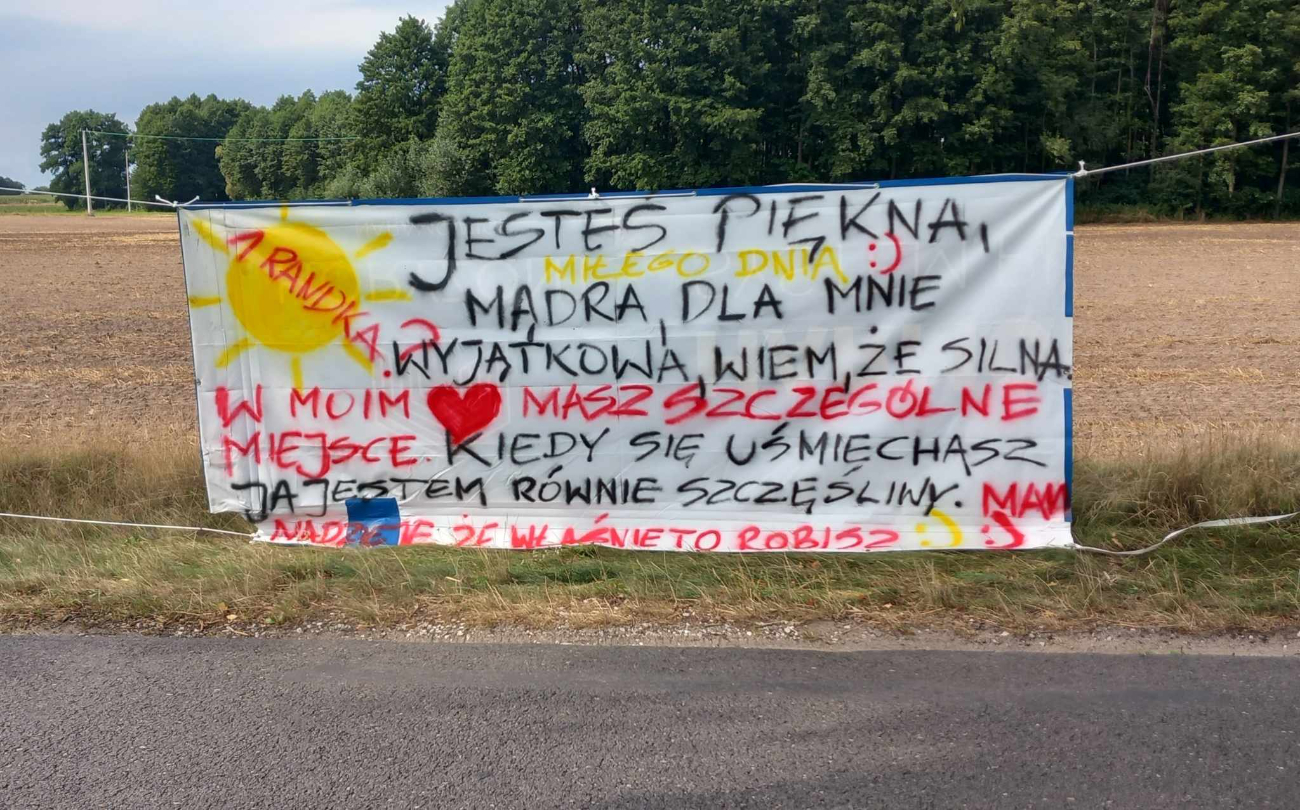 JESTEŚ PIĘKNA,
MIŁEGO DNIA :)
1 RANDKA?
MĄDRA, DLA MNIE
WYJĄTKOWA, WIEM, ŻE SILNA.
W MOIM ❤ MASZ SZCZEGÓLNE
MIEJSCE. KIEDY SIĘ UŚMIECHASZ
JA JESTEM RÓWNIE SZCZĘŚLIWY. MAM
NADZIEJE ŻE WŁAŚNIE TO ROBISZ :) :)